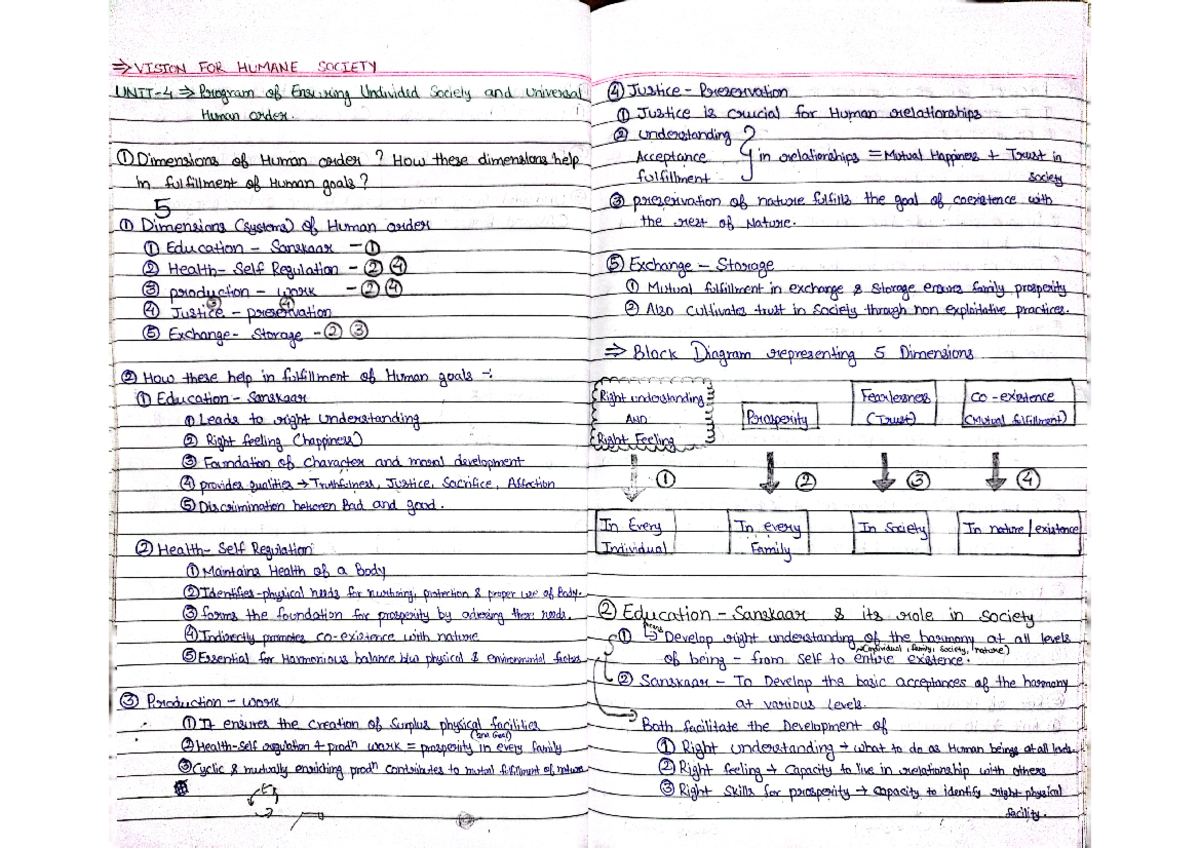 ⇒ VISION FOR HUMANE SOCIETY
UNIT-4 ⇒ Program of Ensuring Undivided Society and Universal
Human order.
① Dimensions of Human order ? How these dimensions help
in fulfillment of Human goals ?
5
① Dimensions (systems) of Human order
① Education - Sanskaar - ①
② Health- Self Regulation - ② ④
③ production - work - ② ④
④ Justice - preservation ③ ④
⑤ Exchange- Storage - ② ③
② How these help in fulfillment of Human goals -:
① Education - Sanskaar
① Leads to right understanding
② Right feeling (happiness)
③ Foundation of character and moral development
④ provides qualities → Truthfulness, Justice, Sacrifice, Affection
⑤ Discrimination between Bad and good.
② Health- Self Regulation
① Maintains Health of a Body
② Identifies-physical needs for nurturing, protection & proper use of Body.
③ forms the foundation for prosperity by adressing these needs.
④ Indirectly promotes co-existence with nature
⑤ Essential for Harmonious balance b/w physical & environmental factors
③ Production - work
① It ensures the creation of Surplus physical facilities
(2nd Goal)
② Health-Self regulation + prodⁿ work = prosperity in every family
③ Cyclic & mutually enriching prodⁿ contributes to mutual fulfilment of nature
④ Justice - Preservation
① Justice is crucial for Human relationships
② understanding
Acceptance } in relationships = Mutual Happiness + Trust in
fulfillment Society
③ preservation of nature fulfills the goal of coexistence with
the rest of Nature.
⑤ Exchange - Storage
① Mutual fulfillment in exchange & storage ensures family prosperity
② Also cultivates trust in Society through non exploitative practices.
⇒ Block Diagram representing 5 Dimensions
Right understanding
AND
Right Feeling
Prosperity
Fearlessness
(Trust)
Co-existence
(Mutual fulfilment)
①
②
③
④
In Every
Individual
In every
Family
In Society
In nature/existence
② Education - Sanskaar & its role in society
① Develop right understanding of the harmony at all levels
(individual, family, society, nature)
of being - from self to entire existence.
② Sanskaar - To Develop the basic acceptances of the harmony
at various levels.
Both facilitate the Development of
① Right understanding → what to do as Human beings at all levels.
② Right feeling → Capacity to live in relationship with others
③ Right Skills for prosperity → Capacity to identify right physical
facility.